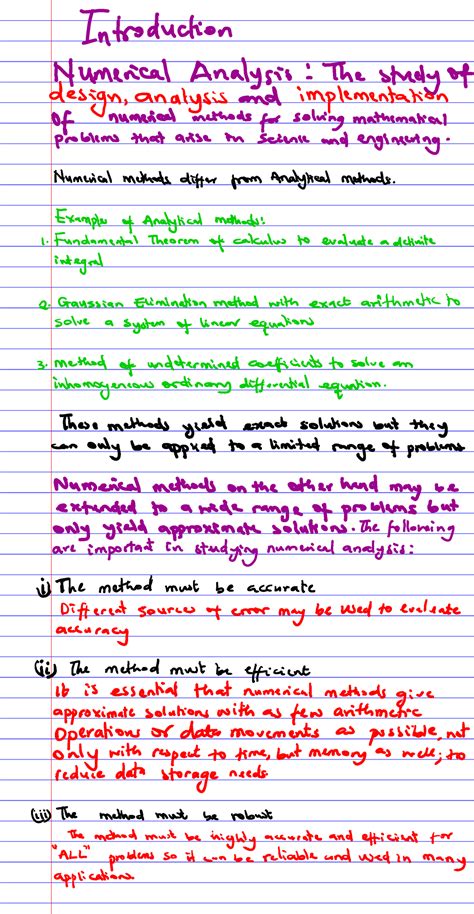 Introduction
Numerical Analysis : The study of
design, analysis and implementation
Of numerical methods for solving mathematical
problems that arise in Science and engineering.
Numerical methods differ from Analytical methods.
Examples of Analytical methods:
1. Fundamental Theorem of calculus to evaluate a definite
integral
2. Gaussian Elimination method with exact arithmetic to
solve a system of linear equations
3. method of undetermined coefficients to solve an
inhomogeneous ordinary differential equation.
These methods yield exact solutions but they
can only be applied to a limited range of problems
Numerical methods on the other hand may be
extended to a wide range of problems but
only yield approximate solutions. The following
are important in studying numerical analysis:
i) The method must be accurate
Different sources of error may be used to evaluate
accuracy
(ii) The method must be efficient
It is essential that numerical methods give
approximate solutions with as few arithmetic
Operations or data movements as possible, not
only with respect to time, but memory as well; to
reduce data storage needs
(iii) The method must be robust
The method must be highly accurate and efficient for
"ALL" problems so it can be reliable and used in many
applications